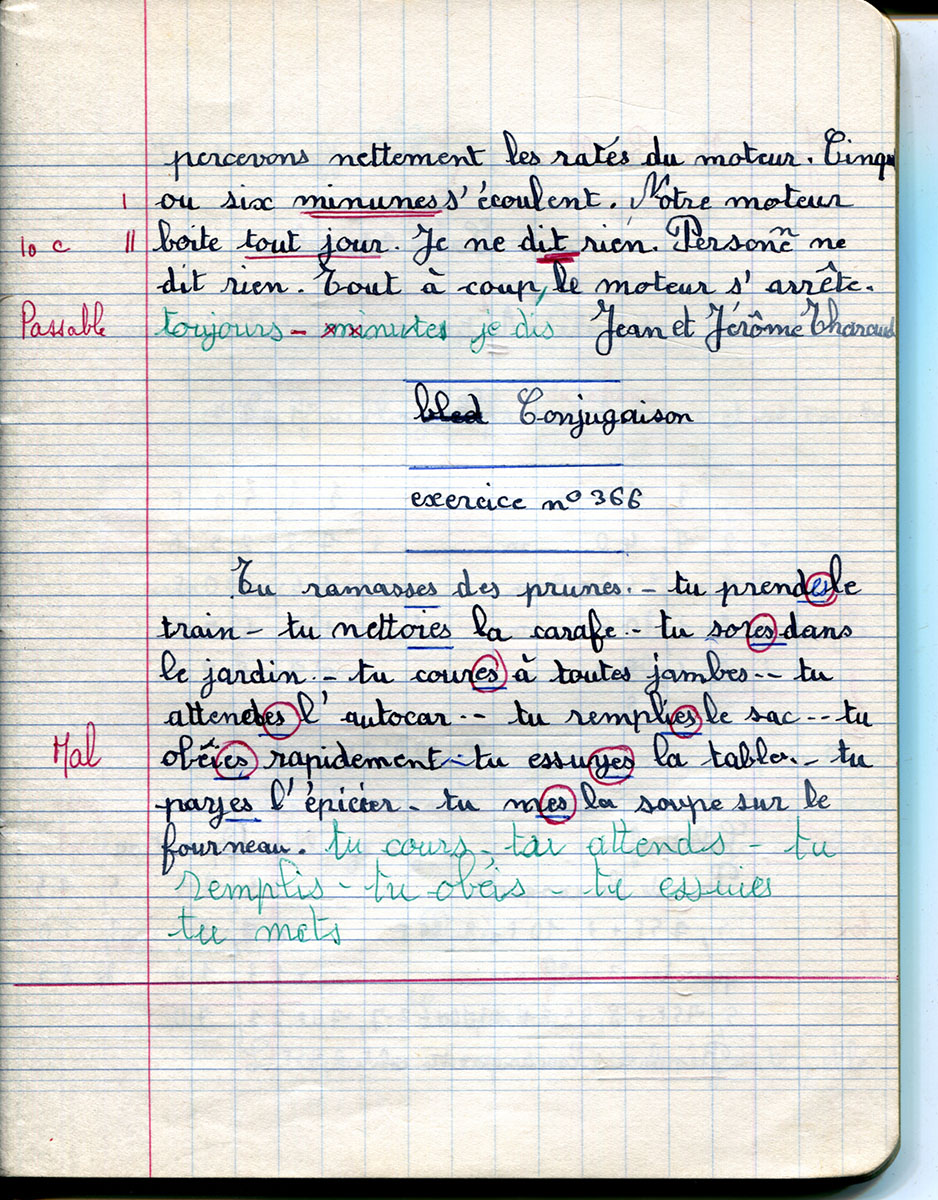 percevons nettement les ratés du moteur. Cinq
1 ou six minunes s'écoulent. Notre moteur
10 c 11 boite tout jour. Je ne dit rien. Personne ne
dit rien. Tout à coup, le moteur s'arrête.
Passable toujours - minutes je dis Jean et Jérôme Tharaud
bled Conjugaison
exercice nº 366
Tu ramasses des prunes. - tu prendes le
train - tu nettoies la carafe - tu sores dans
le jardin - tu coures à toutes jambes - tu
attendes l'autocar - tu remplies le sac - tu
Mal obéies rapidement - tu essuyes la table - tu
payes l'épicier - tu mes la soupe sur le
fourneau. tu cours - tu attends - tu
remplis - tu obéis - tu essuies
tu mets